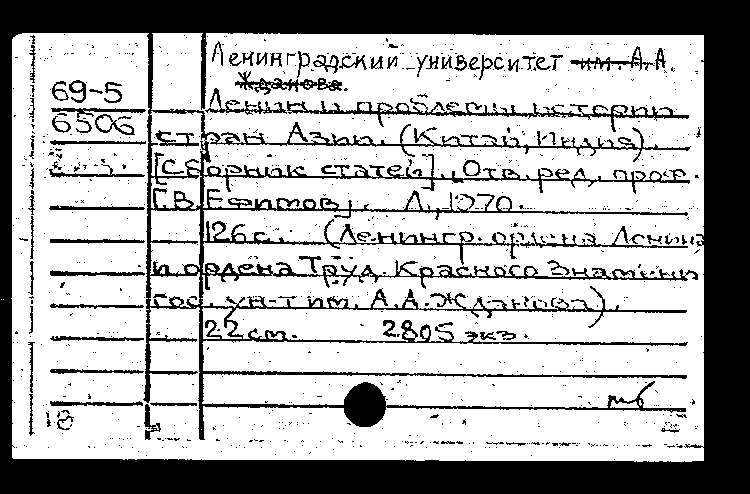 Ленинградский университет им. А.А.
Жданова.
69-5
Ленин и проблемы истории
6506
стран Азии. (Китай, Индия).
[Сборник статей]. [Отв. ред. проф.
Г.В. Ефимов]. Л., 1970.
126 с. (Ленингр. ордена Ленина
и ордена Труд. Красного Знамени
гос. ун-т им. А.А. Жданова).
22 см. 2805 экз.
мб
18